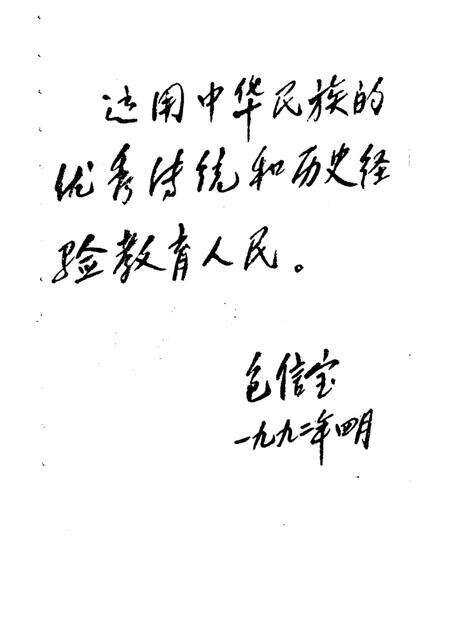 运用中华民族的
优秀传统和历史经
验教育人民。
包信宝
一九九二年四月